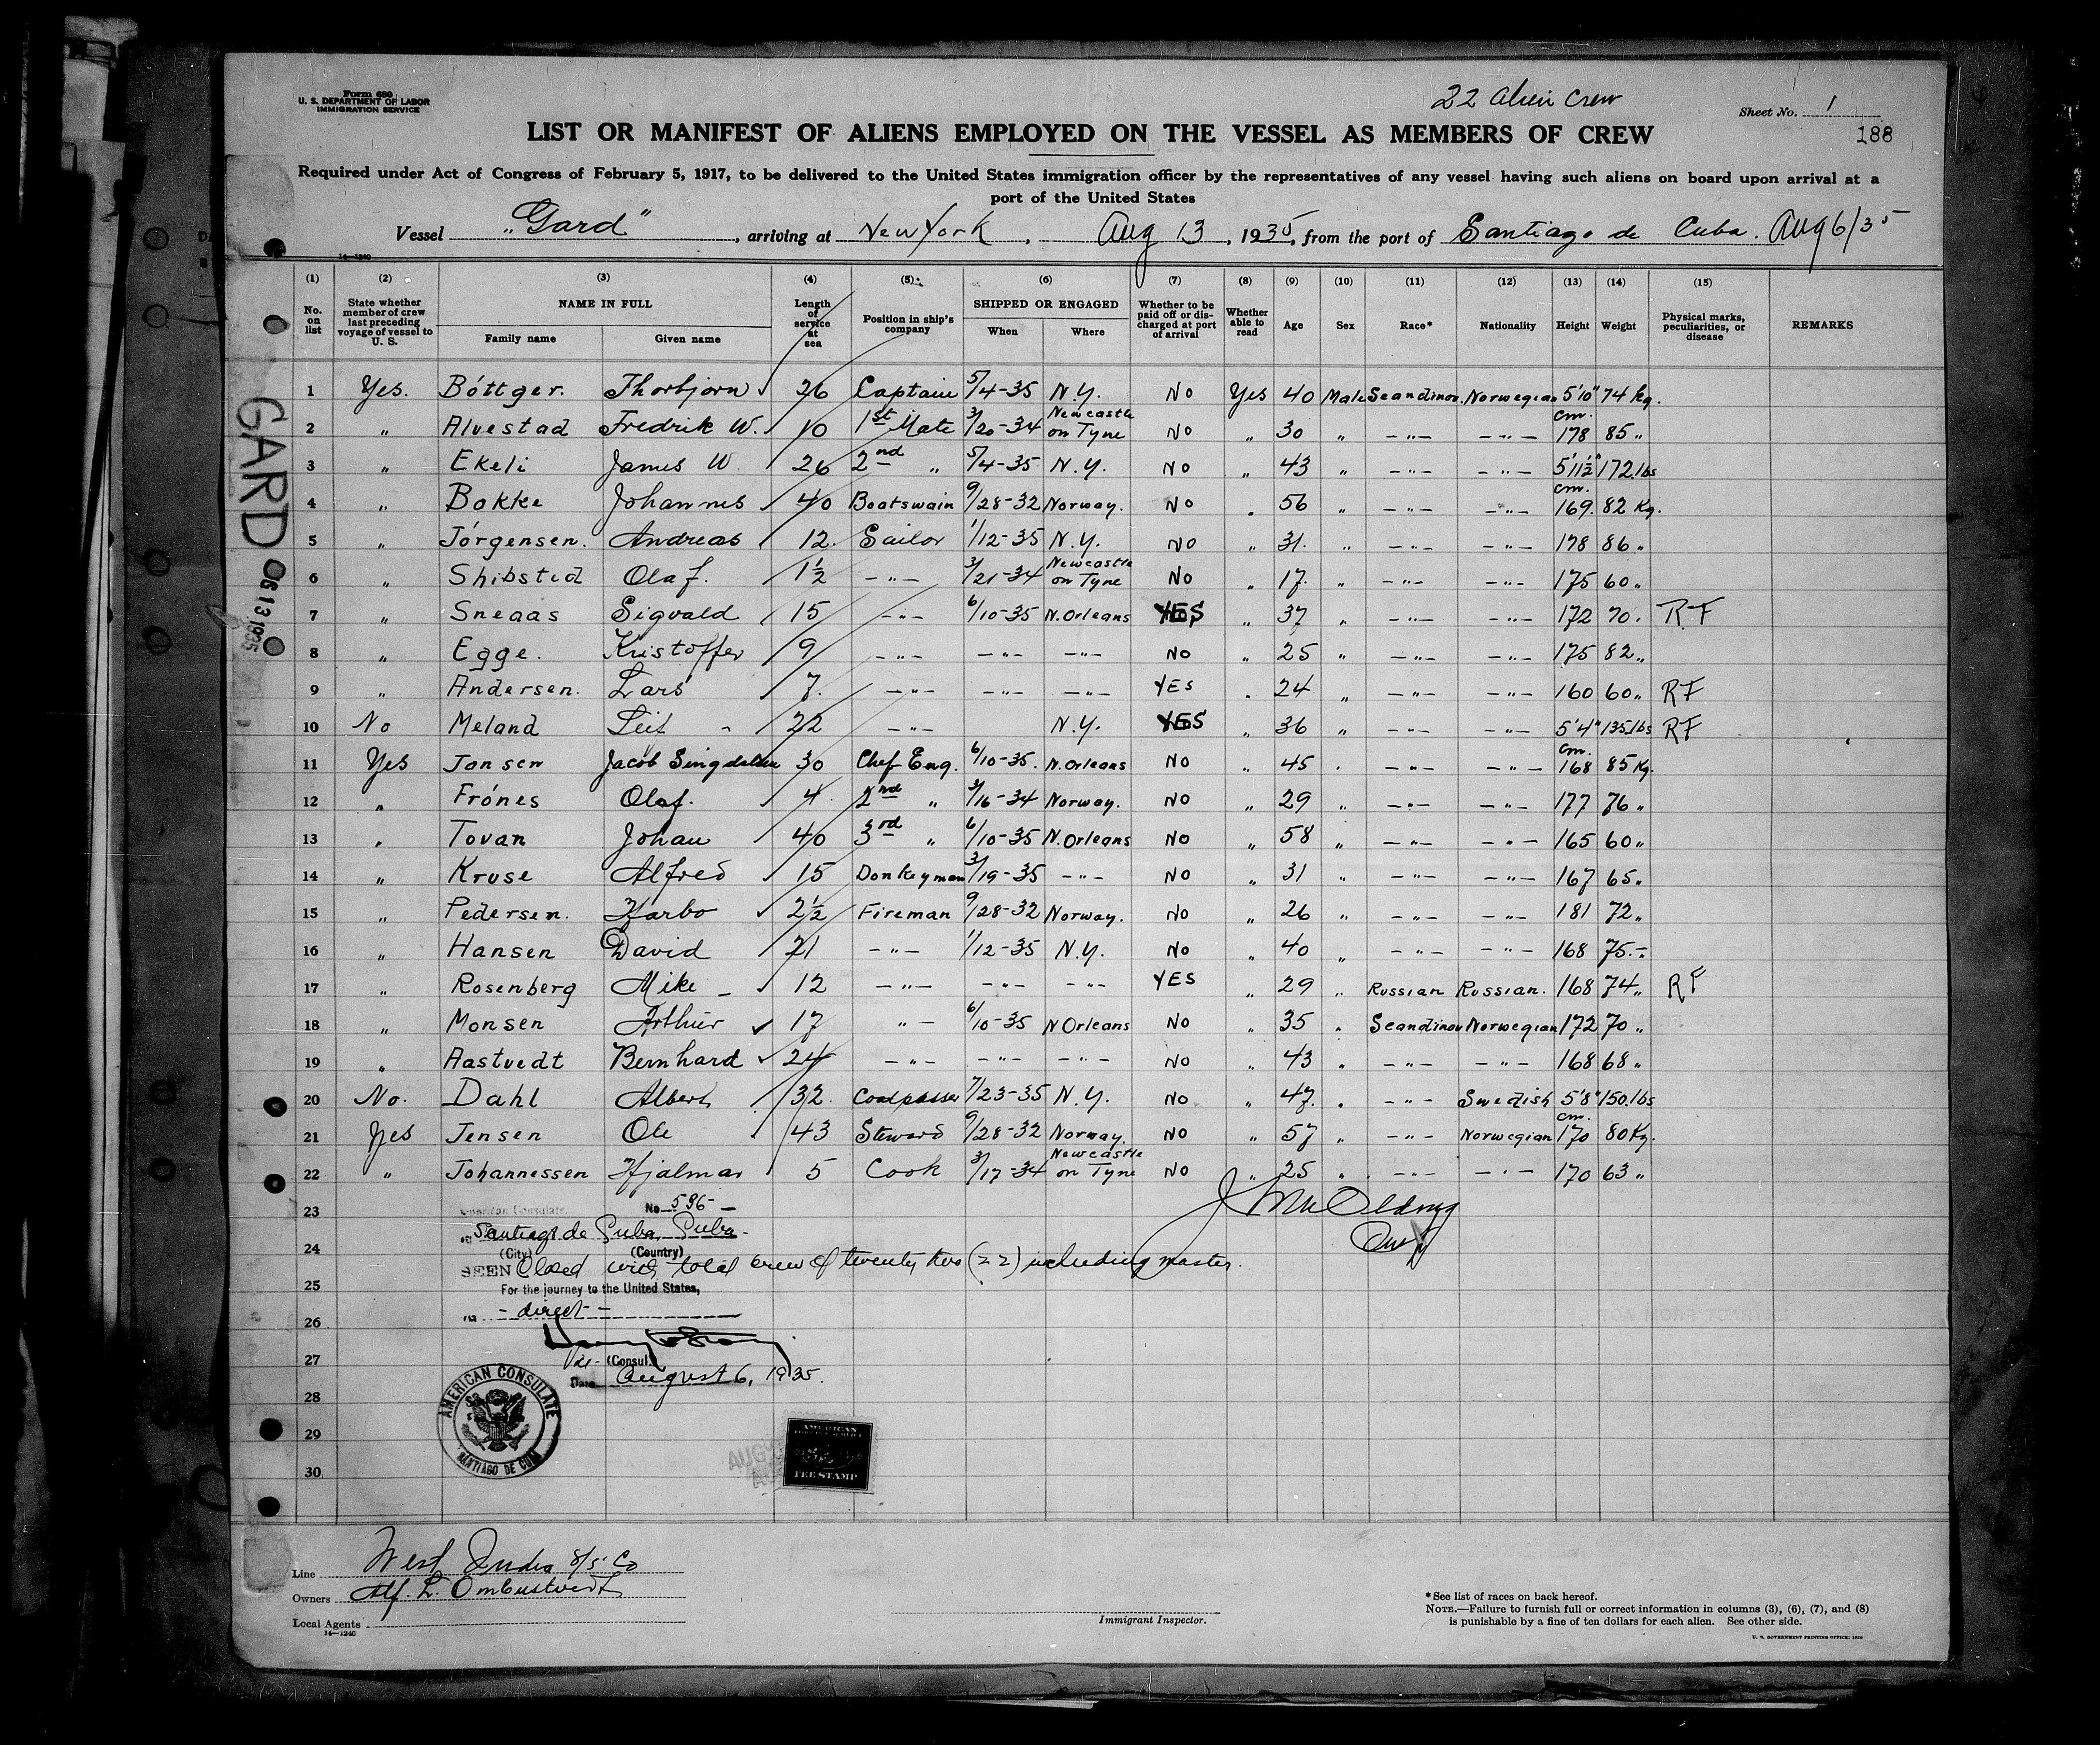 Form 680
U. S. DEPARTMENT OF LABOR
IMMIGRATION SERVICE
22 alien crew
Sheet No. 1
188
LIST OR MANIFEST OF ALIENS EMPLOYED ON THE VESSEL AS MEMBERS OF CREW
Required under Act of Congress of February 5, 1917, to be delivered to the United States immigration officer by the representatives of any vessel having such aliens on board upon arrival at a
port of the United States
Vessel "Gard", arriving at New York, Aug 13, 1935, from the port of Santiago de Cuba. Aug 6/35
14—1240
(1) (2) (3) (4) (5) (6) (7) (8) (9) (10) (11) (12) (13) (14) (15)
No. on list | State whether member of crew last preceding voyage of vessel to U. S. | NAME IN FULL | Family name | Given name | Length of service at sea | Position in ship's company | SHIPPED OR ENGAGED | When | Where | Whether to be paid off or discharged at port of arrival | Whether able to read | Age | Sex | Race* | Nationality | Height | Weight | Physical marks, peculiarities, or disease | REMARKS
1 Yes. Böttger. Thorbjorn 26 Captain 5/4-35 N.Y. No Yes 40 Male Scandinav. Norwegian 5'10" 74 kg.
2 " Alvestad Fredrik W. 10 1st Mate 3/20-34 Newcastle on Tyne No " 30 " -"- -"- cm. 178 85 "
3 " Ekeli James W 26 2nd " 5/4-35 N.Y. No " 43 " -"- -"- 5'11½" 172 lbs
4 " Bakke Johannes 40 Boatswain 9/28-32 Norway. No " 56 " -"- -"- cm. 169. 82 Kg.
5 " Jörgensen. Andreas 12 Sailor 1/12-35 N.Y. No " 31. " -"- -"- 178 86 "
6 " Shibsted Olaf. 1½ -"- 3/21-34 Newcastle on Tyne No " 17. " -"- -"- 175 60 "
7 " Sneaas Sigvald 15 -"- 6/10-35 N.Orleans YES " 37 " -"- -"- 172 70 " RF
8 " Egge. Kristoffer 9 -"- -"- -"- No " 25 " -"- -"- 175 82 "
9 " Andersen. Lars 7. -"- -"- -"- YES " 24 " -"- -"- 160 60 " RF
10 No Meland Leif 22 -"- N.Y. YES " 36 " -"- -"- 5'4" 135 lbs RF
11 Yes Jansen Jacob 30 Chef Eng. 6/10-35. N.Orleans No " 45 " -"- -"- cm. 168 85 Kg.
12 " Frönes Olaf. 4 2nd " 3/16-34 Norway. No " 29 " -"- -"- 177 76 "
13 " Tovan Johan 40 3rd " 6/10-35 N.Orleans No " 58 " -"- -"- 165 60 "
14 " Kruse Alfred 15 Donkeyman 3/19-35 -"- No " 31 " -"- -"- 167 65 "
15 " Pedersen. Harbo 2½ Fireman 9/28-32 Norway. No " 26 " -"- -"- 181 72 "
16 " Hansen David 21 -"- 1/12-35 N.Y. No " 40 " -"- -"- 168 75 "
17 " Rosenberg Mike 12 -"- -"- -"- YES " 29 " Russian Russian. 168 74 " RF
18 " Monsen Arthur 17 "- 6/10-35 N Orleans No " 35 " Scandinav Norwegian 172 70 "
19 " Aastvedt Bernhard 24 -"- -"- -"- No " 43 " -"- -"- 168 68 "
20 No. Dahl Albert 32. Coalpasser 7/23-35 N.Y. No " 47. " -"- Swedish 5'8" 150 lbs
21 Yes Jensen Ole 43 Steward 9/28-32 Norway. No " 57 " -"- Norwegian cm. 170 80 Kg.
22 " Johannessen Hjalmar 5 Cook 3/17-34 Newcastle on Tyne No " 25 " -"- -"- 170 63 "
23
24
25
26
27
28
29
30
American Consulate. No 596 —
at Santiago de Cuba, Cuba.
(City) (Country)
SEEN Closed with total crew of twenty two (22) including master.
For the journey to the United States,
- direct -
Vice- (Consul.)
Date August 6, 1935.
AMERICAN CONSULATE
SANTIAGO DE CUBA
AMERICAN
FEE STAMP
GARD
G 13 1935
Line West India S/S Co
Owners Alf. L.
Local Agents
14—1240
Immigrant Inspector.
*See list of races on back hereof.
NOTE.—Failure to furnish full or correct information in columns (3), (6), (7), and (8)
is punishable by a fine of ten dollars for each alien. See other side.
U. S. GOVERNMENT PRINTING OFFICE: